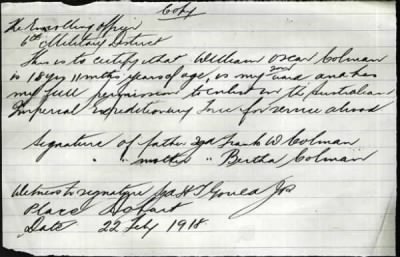 Copy
The Enrolling Officer
6th Military District
This is to certify that William Oscar Colman
is 18 yrs 11 mths years of age, is my son ward and has
my full permission to enlist in the Australian
Imperial Expeditionary Force for service abroad
Signature of father sgd Frank W Colman
" " mother " Bertha Colman
Witness to signature sgd H T Gould Jps
Place Hobart
Date 22 Feby 1918